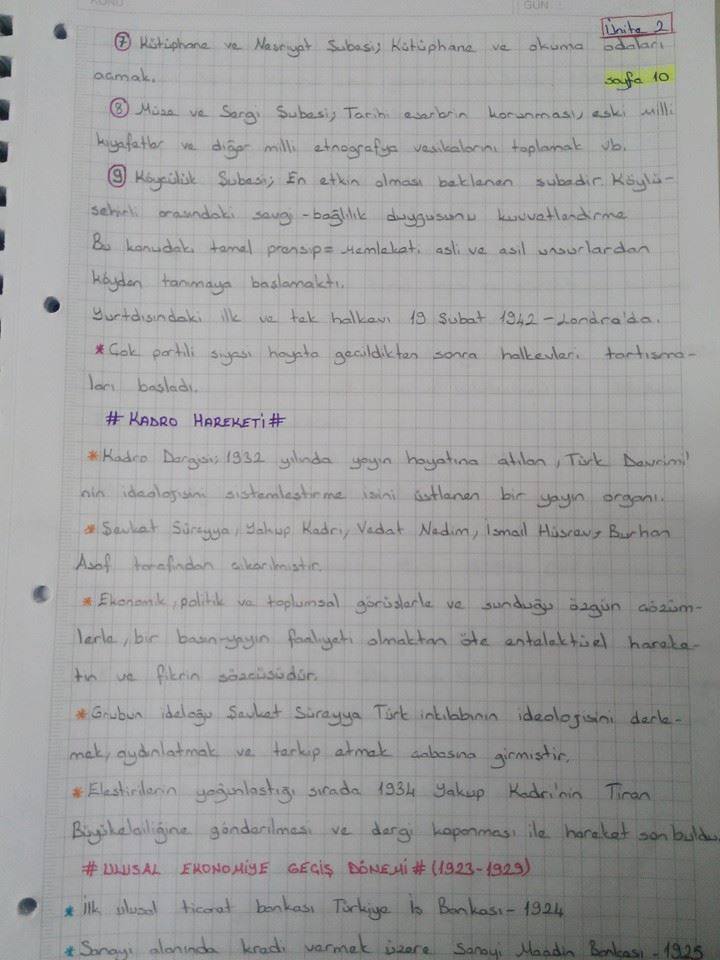 KONU
GÜN :
Ünite 2
7 Kütüphane ve Nesriyat Subesi; Kütüphane ve okuma odaları
acmak.
sayfa 10
8 Müze ve Sergi Subesi; Tarihi eserlerin korunması, eski milli
kıyafetler ve diğer milli etnografya vesikalarını toplamak vb.
9 Köycülük Subesi; En etkin olması beklenen subedir. Köylü-
sehirli arasındaki sevgi-bağlılık duygusunu kuvvetlendirme
Bu konudaki temel prensip= Memleketi asli ve asil unsurlardan
köyden tanımaya baslamaktı.
Yurtdısındaki ilk ve tek halkevi 19 Subat 1942 - Londra'da.
* Cok partili siyasi hayata gecildikten sonra halkevleri tartısma-
ları basladı.
# KADRO HAREKETİ #
* Kadro Dergisi; 1932 yılında yayın hayatına atılan, Türk Devrimi'
nin ideolojisini sistemlestirme isini üstlenen bir yayın organı.
* Sevket Süreyya, Yakup Kadri, Vedat Nedim, İsmail Hüsrev, Burhan
Asaf tarafından cıkarılmıstır.
* Ekonomik, politik ve toplumsal görüslerle ve sunduğu özgün cözüm-
lerle, bir basın-yayın faaliyeti olmaktan öte entelektüel hareke-
tin ve fikrin sözcüsüdür.
* Grubun ideloğu Sevket Süreyya Türk inkılabının ideolojisini derle-
mek, aydınlatmak ve terkip etmek cabasına girmistir.
* Elestirilerin yoğunlastığı sırada 1934 Yakup Kadri'nin Tiran
Büyükelciliğine gönderilmesi ve dergi kapanması ile hareket son buldu.
# ULUSAL EKONOMİYE GEÇİŞ DÖNEMİ # (1923-1929)
* İlk ulusal ticaret bankası Türkiye İs Bankası - 1924
* Sanayi alanında kredi vermek üzere Sanayi Maadin Bankası - 1925